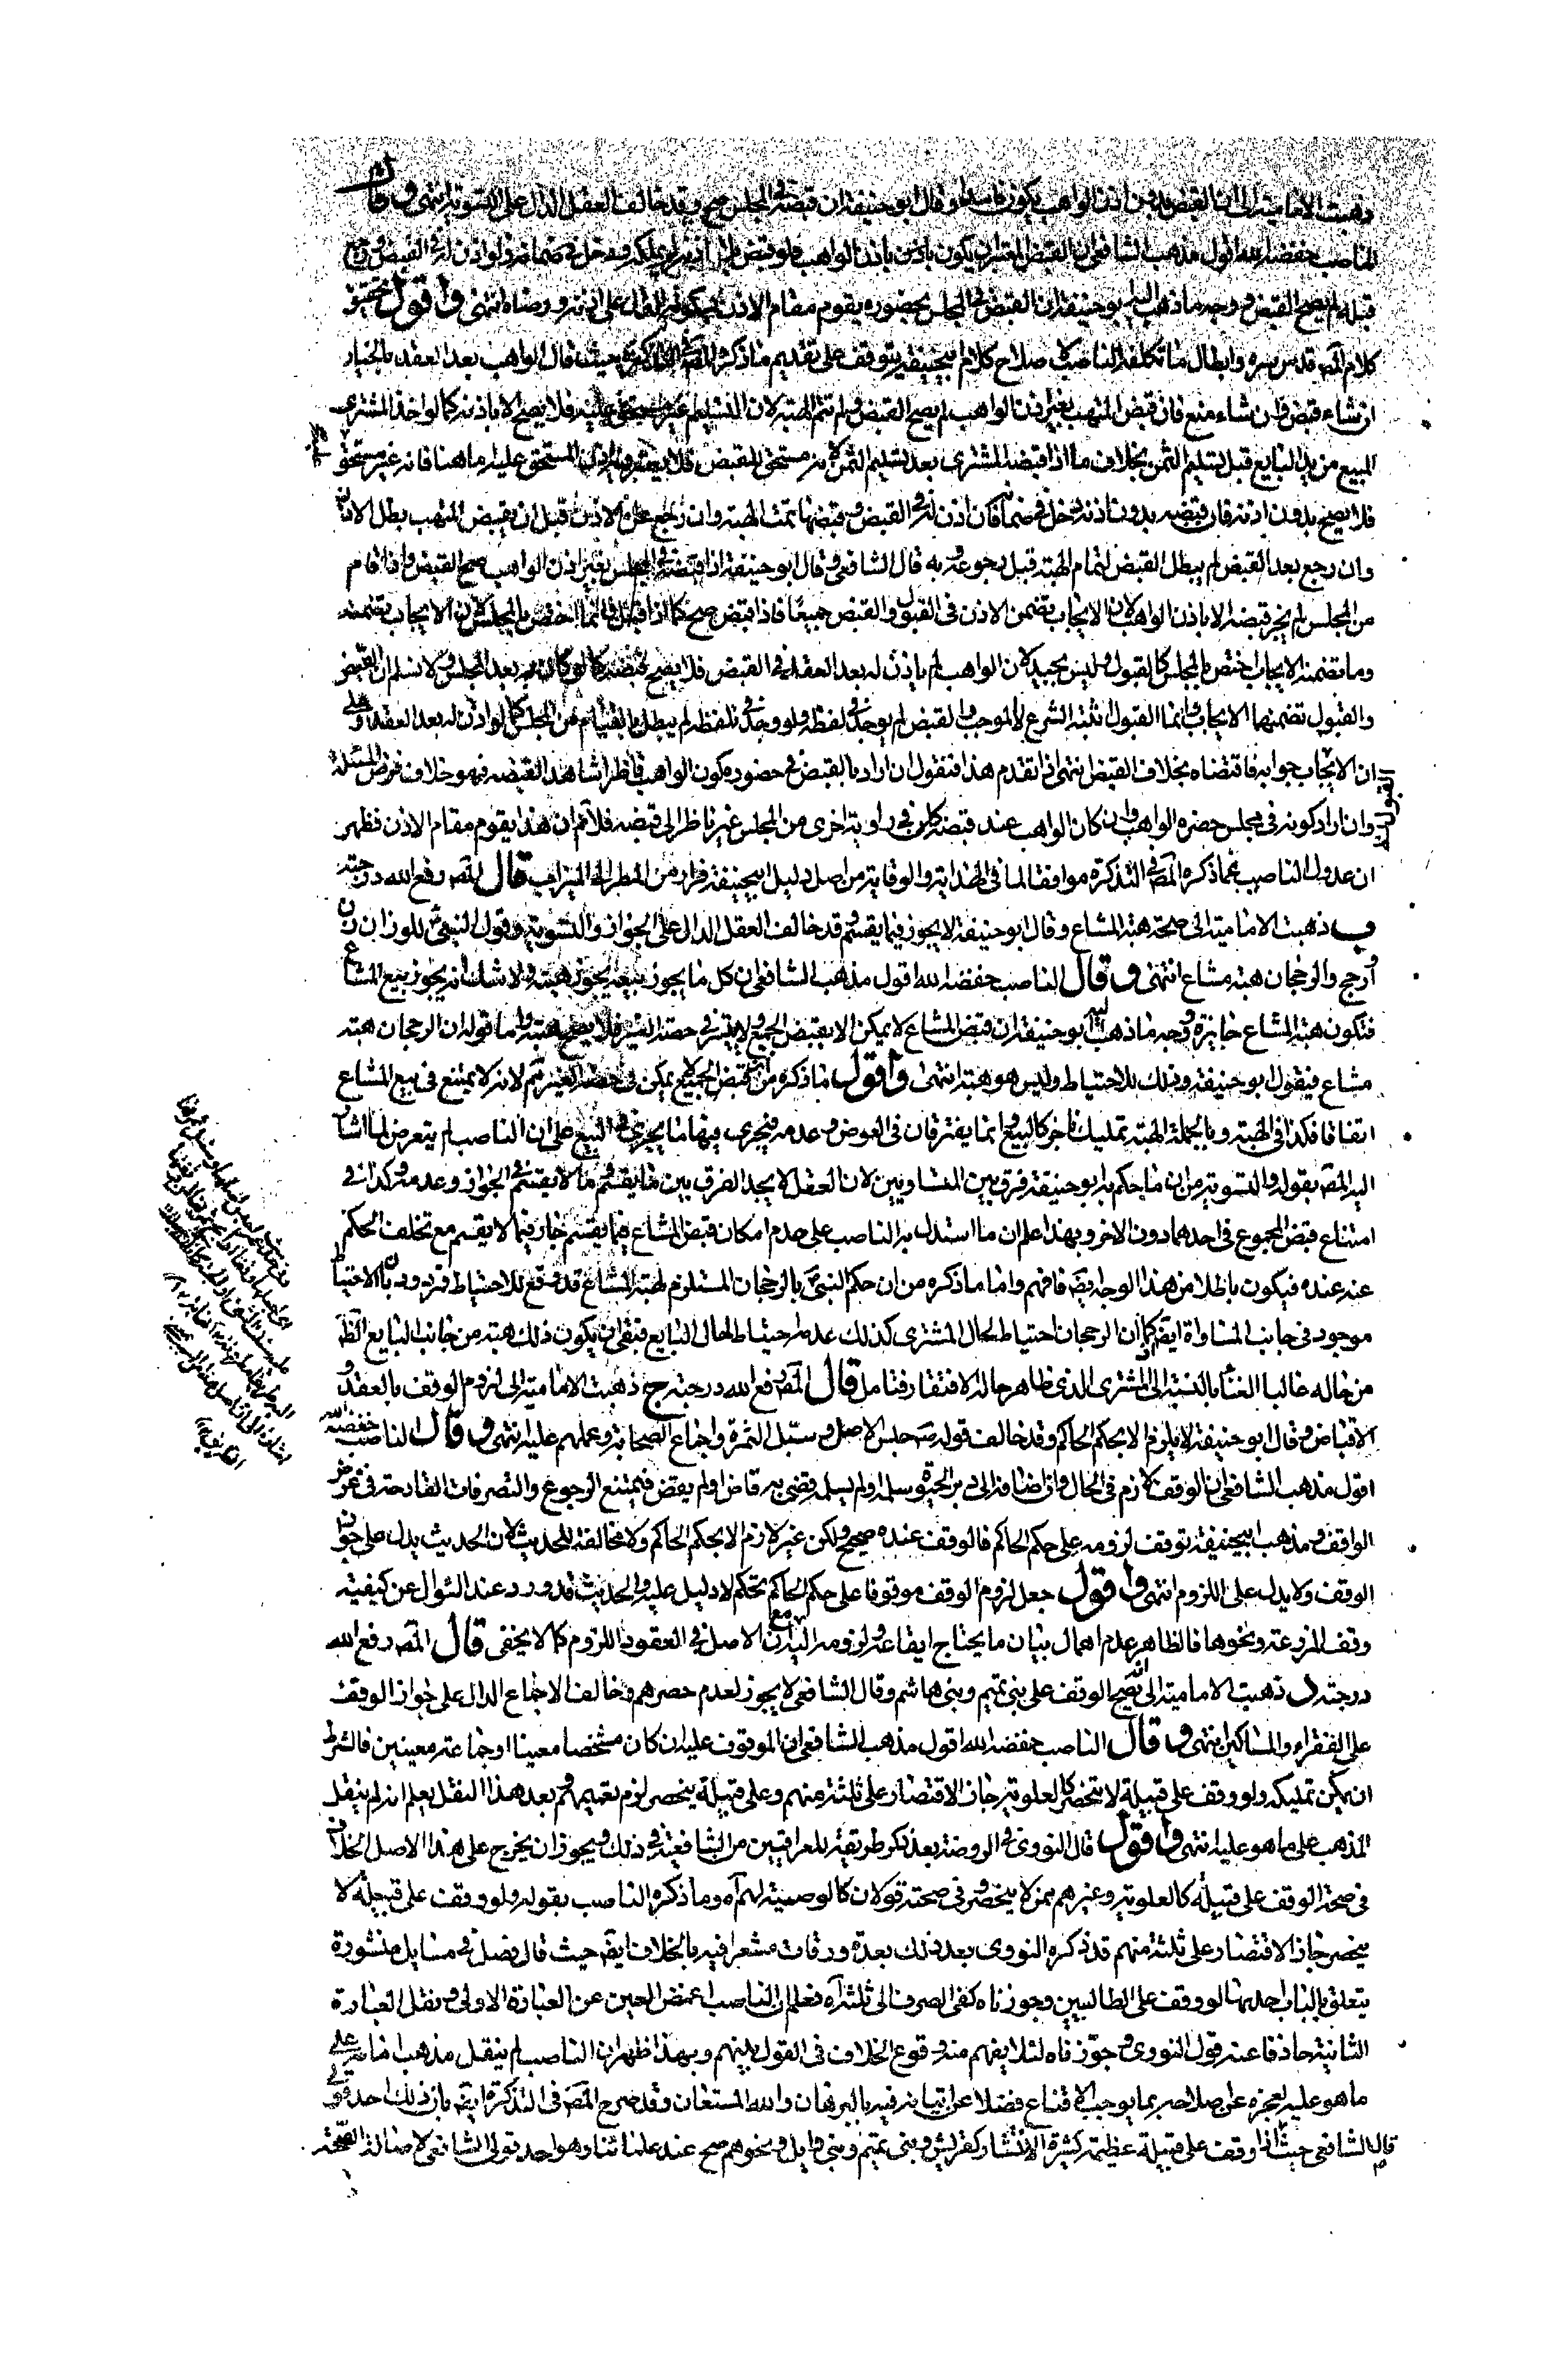 ذهبت الامامية الى ان القبض بدون اذن الواهب يكون فاسدا وقال ابو حنيفة ان قبضه في المجلس صح وقد خالف العقل الدال على التسوية انتهى وقال
الناصب خفضه الله اقول مذهب الشافعي ان القبض المعتبر ان يكون باذن الواهب فلو قبض بلا اذنه لم يملكه ودخل في ضمانه ولو اذن له في القبض ورجع
قبله لم يصح القبض ووجه ما ذهب اليه ابو حنيفة ان القبض في المجلس بحضوره يقوم مقام الاذن انتهى واقول
كلام المص قدس سره وابطال ما تكلفه الناصب لاصلاح كلام ابيحنيفة يتوقف على تقديم ما ذكره المص في التذكرة حيث قال الواهب بعد العقد بالخيار
ان شاء قبض وان شاء منع فان قبض المتهب بغير اذن الواهب لم يصح القبض ولم تتم الهبة لان التسليم غير مستحق عليه فلا يصح الا باذنه كما لو اخذ المشتري
المبيع من يد البايع قبل تسليم الثمن بخلاف ما اذا قبضه المشتري بعد تسليم الثمن لانه مستحق القبض فلا يعتبر اذن المستحق عليه اما هنا فانه غير مستحق
فلا يصح بدون اذنه فان قبضه بدون اذنه دخل في ضمانه فان اذن له في القبض وقبضها تمت الهبة وان رجع عن الاذن قبل ان يقبض المتهب بطل الاذن
وان رجع بعد القبض لم يبطل القبض لتمام الهبة قبل رجوعه وبه قال الشافعي وقال ابو حنيفة اذا قبضه في المجلس بغير اذن الواهب صح القبض واذا قام
من المجلس لم يجز قبضه الا باذن الواهب لان الايجاب تضمن الاذن في القبول والقبض جميعا فاذا قبض صح كما اذا قبل وانما اختص بالمجلس لان الايجاب تضمنه
وما تضمنه الايجاب اختص بالمجلس كالقبول وليس بجيد لان الواهب لم ياذن له بعد العقد في القبض فلا يصح قبضه كما لو كان بعد المجلس ولا نسلم ان القبض
والقبول تضمنهما الايجاب وانما القبول اثبته الشرع لا الموجب والقبض لم يوجد في لفظه ولو وجد في تلفظه لم يبطل بالقيام من المجلس كما لو اذن له بعد العقد وعلى
ان الايجاب جوابه فاقتضاه بخلاف القبض انتهى اذا تقدم هذا فنقول ان اراد بالقبض في حضوره كون الواهب ناظرا شاهدا لقبضه فهو خلاف فرض المسئلة
وان اراد كونه في مجلس حضره الواهب وان كان الواهب عند قبضه كان في زاوية اخرى من المجلس غير ناظر الى قبضه فلا نم ان هذا يقوم مقام الاذن فظهر
ان عدول الناصب عما ذكره المص في التذكرة موافقا لما في الهداية والوقاية من اصل دليل ابيحنيفة فرار من المطر الى الميزاب قال المص رفع الله درجته
ب ذهبت الامامية الى صحة هبة المشاع وقال ابو حنيفة لا يجوز فيما يقسم وقد خالف العقل الدال على الجواز والتسوية وقول النبي ص للوزان زن
وارجح والرجحان هبة مشاع انتهى وقال الناصب خفضه الله اقول مذهب الشافعي ان كل ما يجوز بيعه يجوز هبته ولا شك انه يجوز بيع المشاع
فتكون هبة المشاع جايزة ووجه ما ذهب اليه ابو حنيفة ان قبض المشاع لا يمكن الا بقبض الجميع ولا يتيسر في حصة الغير فلا يصح هبته واما قوله ان الرجحان هبة
مشاع فيقول ابو حنيفة وذلك للاحتياط وليس هو هبة انتهى واقول ما ذكره من ان قبض الجميع لا يمكن في حصة الغير نم لانه لا يمتنع في بيع المشاع
اتفاقا فكذا في الهبة وبالجملة الهبة تمليك ناجز كالبيع وانما يفترقان في العوض وعدمه فيجري فيها ما يجري في البيع على ان الناصب لم يتعرض لما اشار
اليه المص بقوله والتسوية من ان ما حكم به ابو حنيفة فرق بين المتساويين لان العقل لا يجد الفرق بين ما يقسم وما لا يقسم في الجواز وعدمه وكذا في
امتناع قبض المجموع في احدهما دون الاخر وبهذا علم ان ما استدل به الناصب على عدم امكان قبض المشاع فيما يقسم جار فيما لا يقسم مع تخلف الحكم
عنه عنده فيكون باطلا من هذا الوجه ايضه فافهم واما ما ذكره من ان حكم النبي ص بالرجحان المستلزم لهبة المشاع قد وقع للاحتياط فمردود بان الاحتياط
موجود في جانب المساواة ايضه كما ان الرجحان احتياط لحال المشتري كذلك عدمه احتياط لحال البايع فبقي ان يكون ذلك هبة من جانب البايع الظ
من حاله غالبا الغنا بالنسبة الى المشتري الذي ظاهر حاله الافتقار فتامل قال المص رفع الله درجته ج ذهبت الامامية الى لزوم الوقف بالعقد و
الاقباض وقال ابو حنيفة لا يلزم الا بحكم الحاكم وقد خالف قوله ص حبس الاصل وسبل الثمرة واجماع الصحابة وعملهم عليه انتهى وقال الناصب خفضه الله
اقول مذهب الشافعي ان الوقف لازم في الحال وان اضافه الى ما بعد الحيوة سلمه اولم يسلمه قضى به قاض اولم يقض فيمتنع الرجوع والتصرفات القادحة في غرض
الواقف ومذهب ابيحنيفة توقف لزومه على حكم الحاكم فالوقف عنده صحيح ولكن غير لازم الا بحكم الحاكم ولا مخالفة للحديث لان الحديث يدل على جواز
الوقف ولا يدل على اللزوم انتهى واقول جعل لزوم الوقف موقوفا على حكم الحاكم تحكم لا دليل عليه والحديث قد ورد عند السؤال عن كيفية
وقف المزرعة ونحوها فالظاهر عدم اهمال بيان ما يحتاج ايقاعه ولزومه اليه مع ان الاصل في العقود اللزوم كما لا يخفى قال المص رفع الله
درجته د ذهبت الامامية الى انه يصح الوقف على بني تميم وبني هاشم وقال الشافعي لا يجوز لعدم حصرهم وخالف الاجماع الدال على جواز الوقف
على الفقراء والمساكين انتهى وقال الناصب خفضه الله اقول مذهب الشافعي ان الموقوف عليه ان كان شخصا معينا او جماعة معينين فالشرط
ان يمكن تمليكه ولو وقف على قبيلة لا تنحصر كالعلوية جاز الاقتصار على ثلثة منهم وعلى قبيلة ينحصر لزم تعميمهم وبعد هذا النقل يعلم انه لم ينقل
المذهب على ما هو عليه انتهى واقول قال النووي في الروضة بعد ذكر طريقة للعراقيين من الشافعية في ذلك ويجوز ان يخرج على هذا الاصل الخلاف
في صحة الوقف على قبيلة كالعلوية وغيرهم ممن لا ينحصر وفي صحته قولان كالوصية لهم اه وما ذكره الناصب بقوله ولو وقف على قبيلة لا
ينحصر جاز الاقتصار على ثلثة منهم قد ذكره النووي بعد ذلك بعدة ورقات مشعرا فيه بالخلاف ايضه حيث قال فصل في مسايل منثورة
يتعلق بالباب احديها لو وقف على الطالبيين وجوزناه كفى الصرف الى ثلثة اه فعلم ان الناصب اغمض العين عن العبارة الاولى ونقل العبارة
الثانية حاذفا عنه قول النووي وجوزناه لئلا يفهم منه وقوع الخلاف في القول بينهم وبهذا ظهر ان الناصب لم ينقل مذهب امامه على
ما هو عليه لعجزه عن اصلاحه بما يوجب الاقناع فضلا عن اتيانه فيه بالبرهان والله المستعان وقد صرح المص في التذكرة ايضه بان ذلك احد قولي
الشافعي حيث قال لو وقف على قبيلة عظيمة كثيرة الانتشار كقريش وبني تميم وبني وايل ونحوهم صح عند علمائنا وهو احد قولي الشافعي لاصالة الصحة